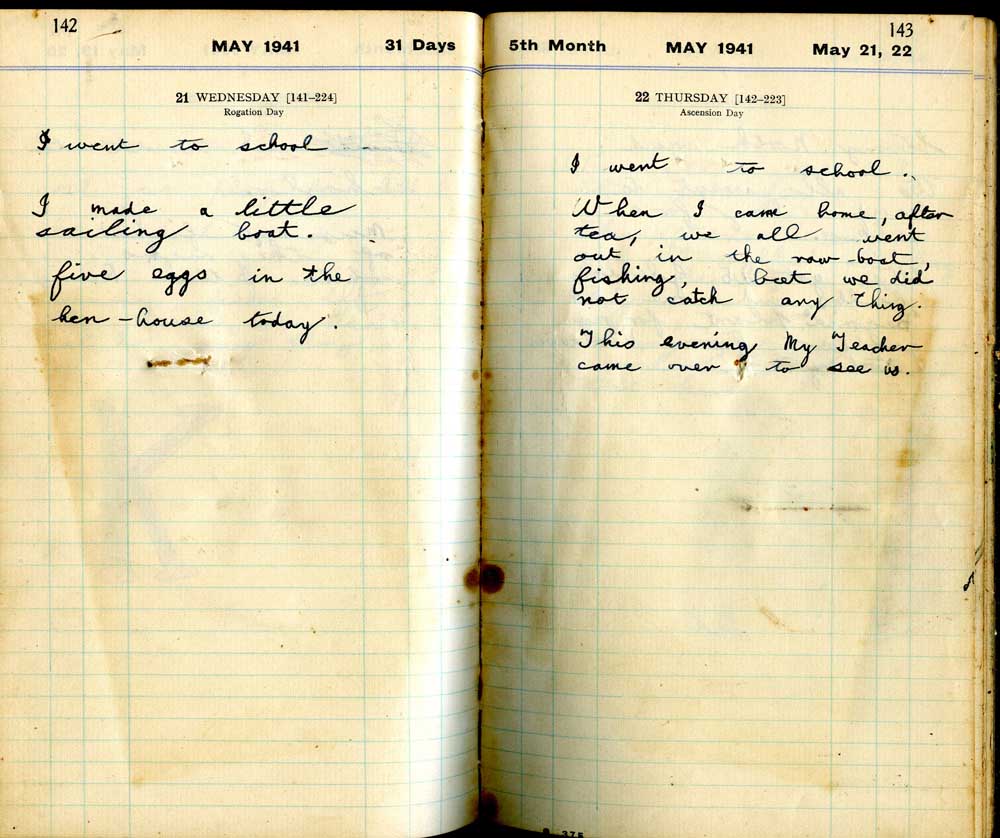 142
MAY 1941 31 Days
21 WEDNESDAY [141–224]
Rogation Day
I went to school
I made a little
sailing boat.
five eggs in the
hen-house today.
143
5th Month MAY 1941 May 21, 22
22 THURSDAY [142–223]
Ascension Day
I went to school.
When I cam home, after
tea, we all went
out in the row-boat,
fishing, but we did
not catch any thing.
This evening My Teacher
came over to see us.